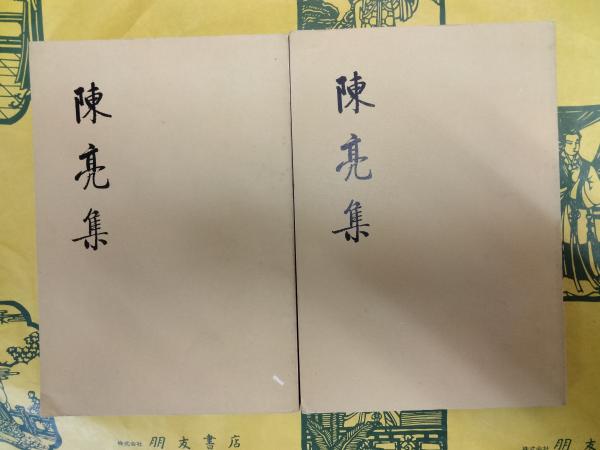 陳亮集
陳亮集
株式会社 朋友書店
株式会社 朋友書店